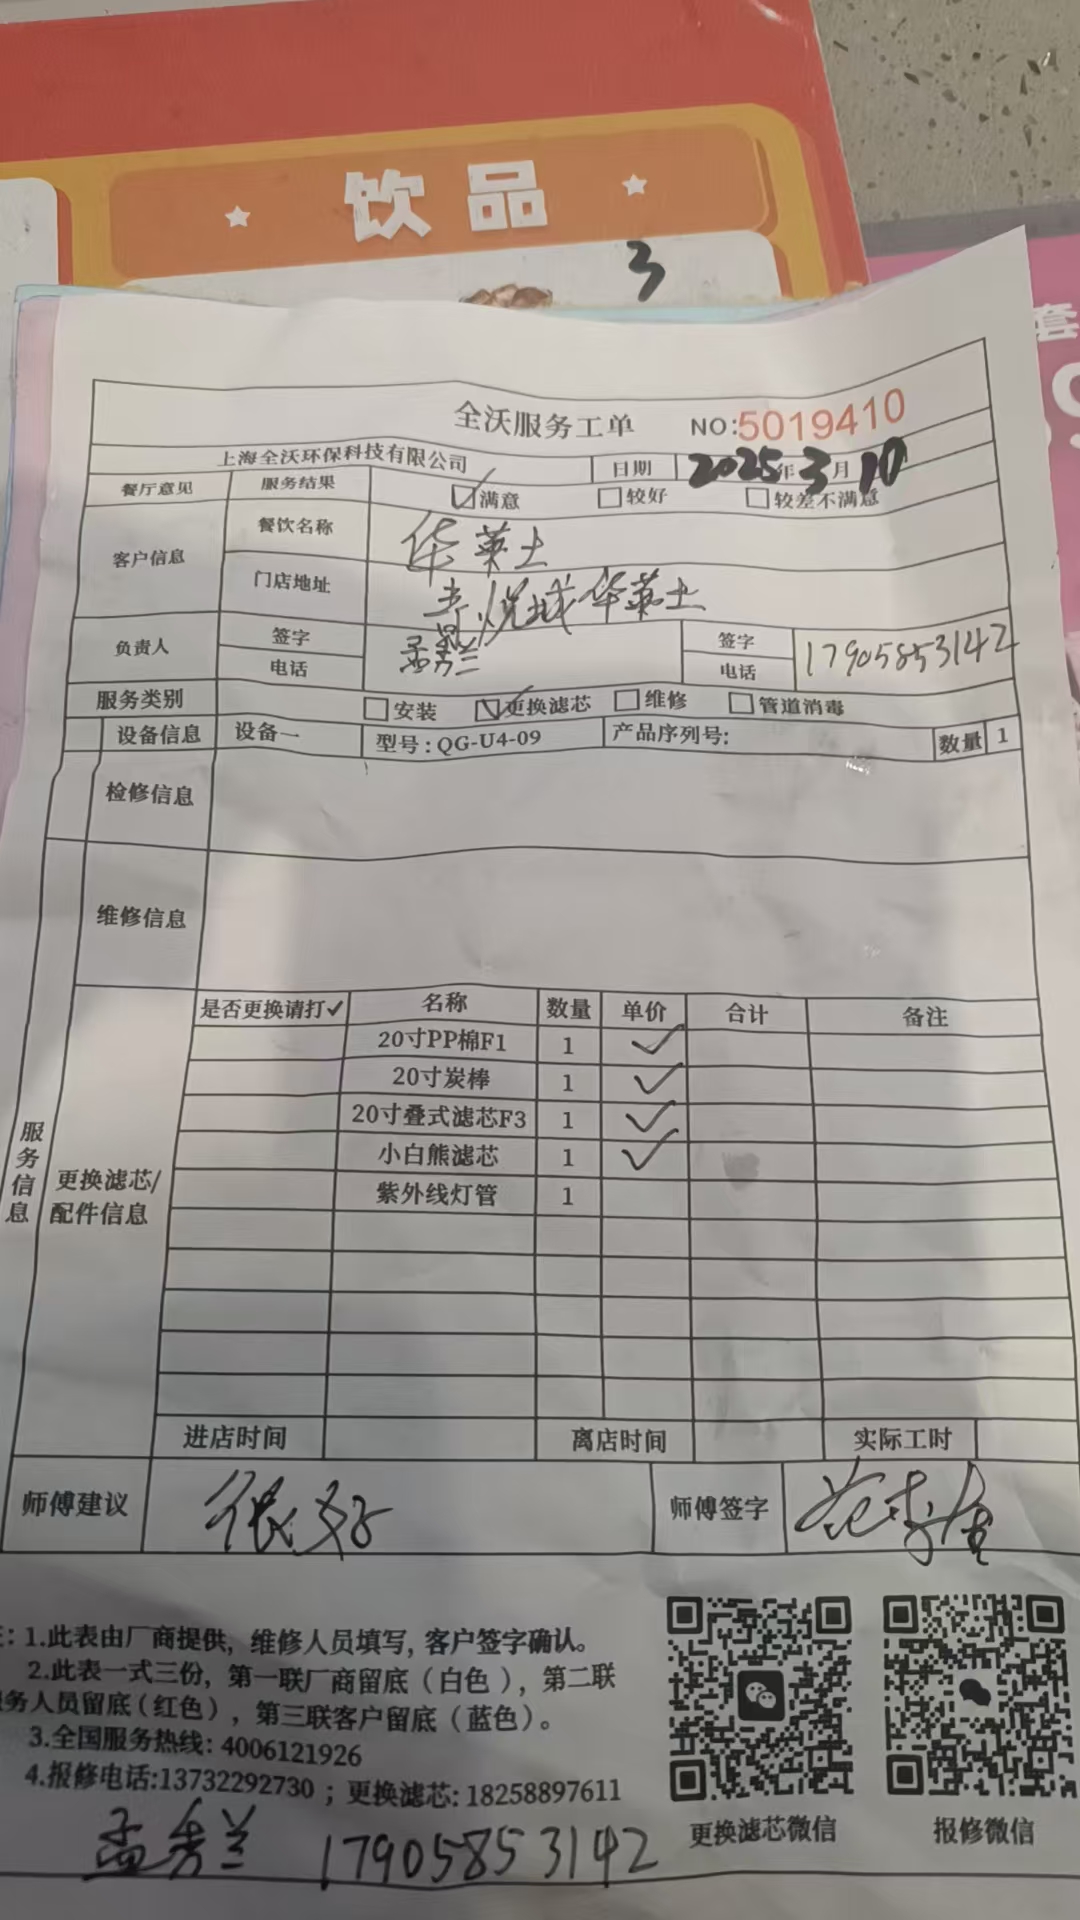 饮品
3
套
全沃服务工单 NO:5019410
上海全沃环保科技有限公司 日期 2025年3月10
餐厅意见 服务结果 ☑满意 □较好 □较差不满意
客户信息 餐饮名称 华莱士
门店地址 悦城华莱士
负责人 签字 孟秀兰 签字
电话 电话 17905853142
服务类别 □安装 ☑更换滤芯 □维修 □管道消毒
设备信息 设备一 型号:QG-U4-09 产品序列号: 数量 1
检修信息
维修信息
服务信息
更换滤芯/配件信息
是否更换请打✓ 名称 数量 单价 合计 备注
20寸PP棉F1 1 ✓
20寸炭棒 1 ✓
20寸叠式滤芯F3 1 ✓
小白熊滤芯 1 ✓
紫外线灯管 1
进店时间 离店时间 实际工时
师傅建议 很好 师傅签字
:1.此表由厂商提供, 维修人员填写, 客户签字确认。
2.此表一式三份, 第一联厂商留底(白色), 第二联
务人员留底(红色), 第三联客户留底(蓝色)。
3.全国服务热线: 4006121926
4.报修电话:13732292730 ; 更换滤芯: 18258897611
更换滤芯微信 报修微信
孟秀兰 17905853142